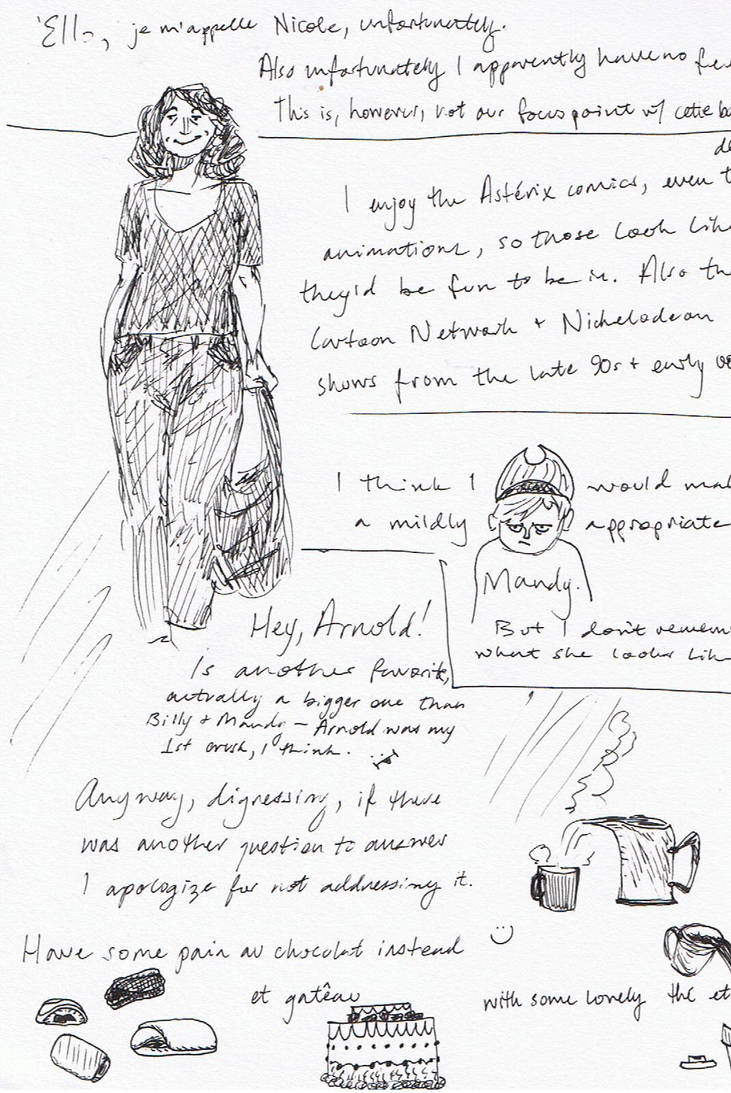 'Ello, je m'appelle Nicole, unfortunately.
Also unfortunately I apparently have no fee
This is, however, not our focus point w/ cette
de
I enjoy the Astérix comics, even t
animations, so those look like
they'd be fun to be in. Also the
Cartoon Network + Nickelodeon
shows from the late 90s + early 00
I think I would mak
a mildly appropriate
Mandy.
But I don't remem
what she looks like
Hey, Arnold!
Is another favorite,
actually a bigger one than
Billy + Mandy – Arnold was my
1st crush, I think.
Anyway, digressing, if there
was another question to answer
I apologize for not addressing it.
Have some pain au chocolat instead
et gatêau with some lovely thé et